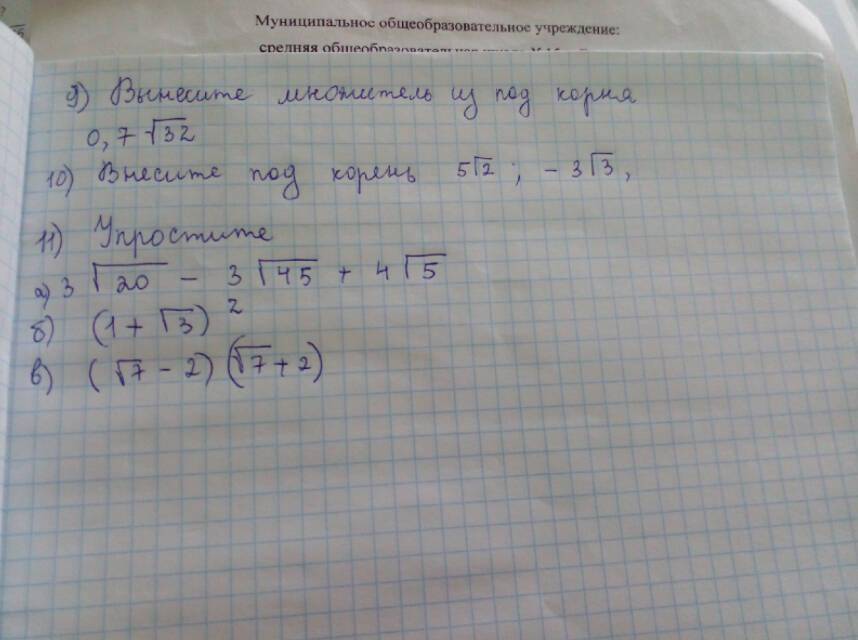 Муниципальное общеобразовательное учреждение:
средняя общеобразовательная
9) Вынесите множитель из под корня
0,7 √32
10) Внесите под корень 5√2 ; - 3√3,
11) Упростите
а) 3 √20 - 3 √45 + 4 √5
б) (1 + √3)²
в) (√7 - 2) (√7 + 2)